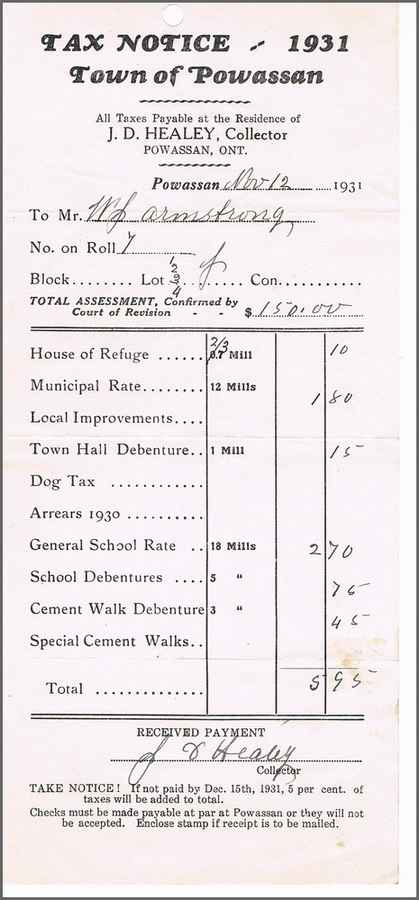 TAX NOTICE - 1931
Town of Powassan
All Taxes Payable at the Residence of
J. D. HEALEY, Collector
POWASSAN, ONT.
Powassan Nov 12 1931
To Mr. WJ Armstrong
No. on Roll 7
Block........ Lot 1 2 3 4 f ...... Con...........
TOTAL ASSESSMENT, Confirmed by
Court of Revision - - $ 150.00
House of Refuge ...... 2/3 0.7 Mill 10
Municipal Rate........ 12 Mills 1 80
Local Improvements....
Town Hall Debenture.. 1 Mill 15
Dog Tax ............
Arrears 1930 ..........
General School Rate .. 18 Mills 2 70
School Debentures .... 5 " 75
Cement Walk Debenture 3 " 45
Special Cement Walks..
Total .............. 5 95
RECEIVED PAYMENT
J D Healey
Collector
TAKE NOTICE! If not paid by Dec. 15th, 1931, 5 per cent. of
taxes will be added to total.
Checks must be made payable at par at Powassan or they will not
be accepted. Enclose stamp if receipt is to be mailed.